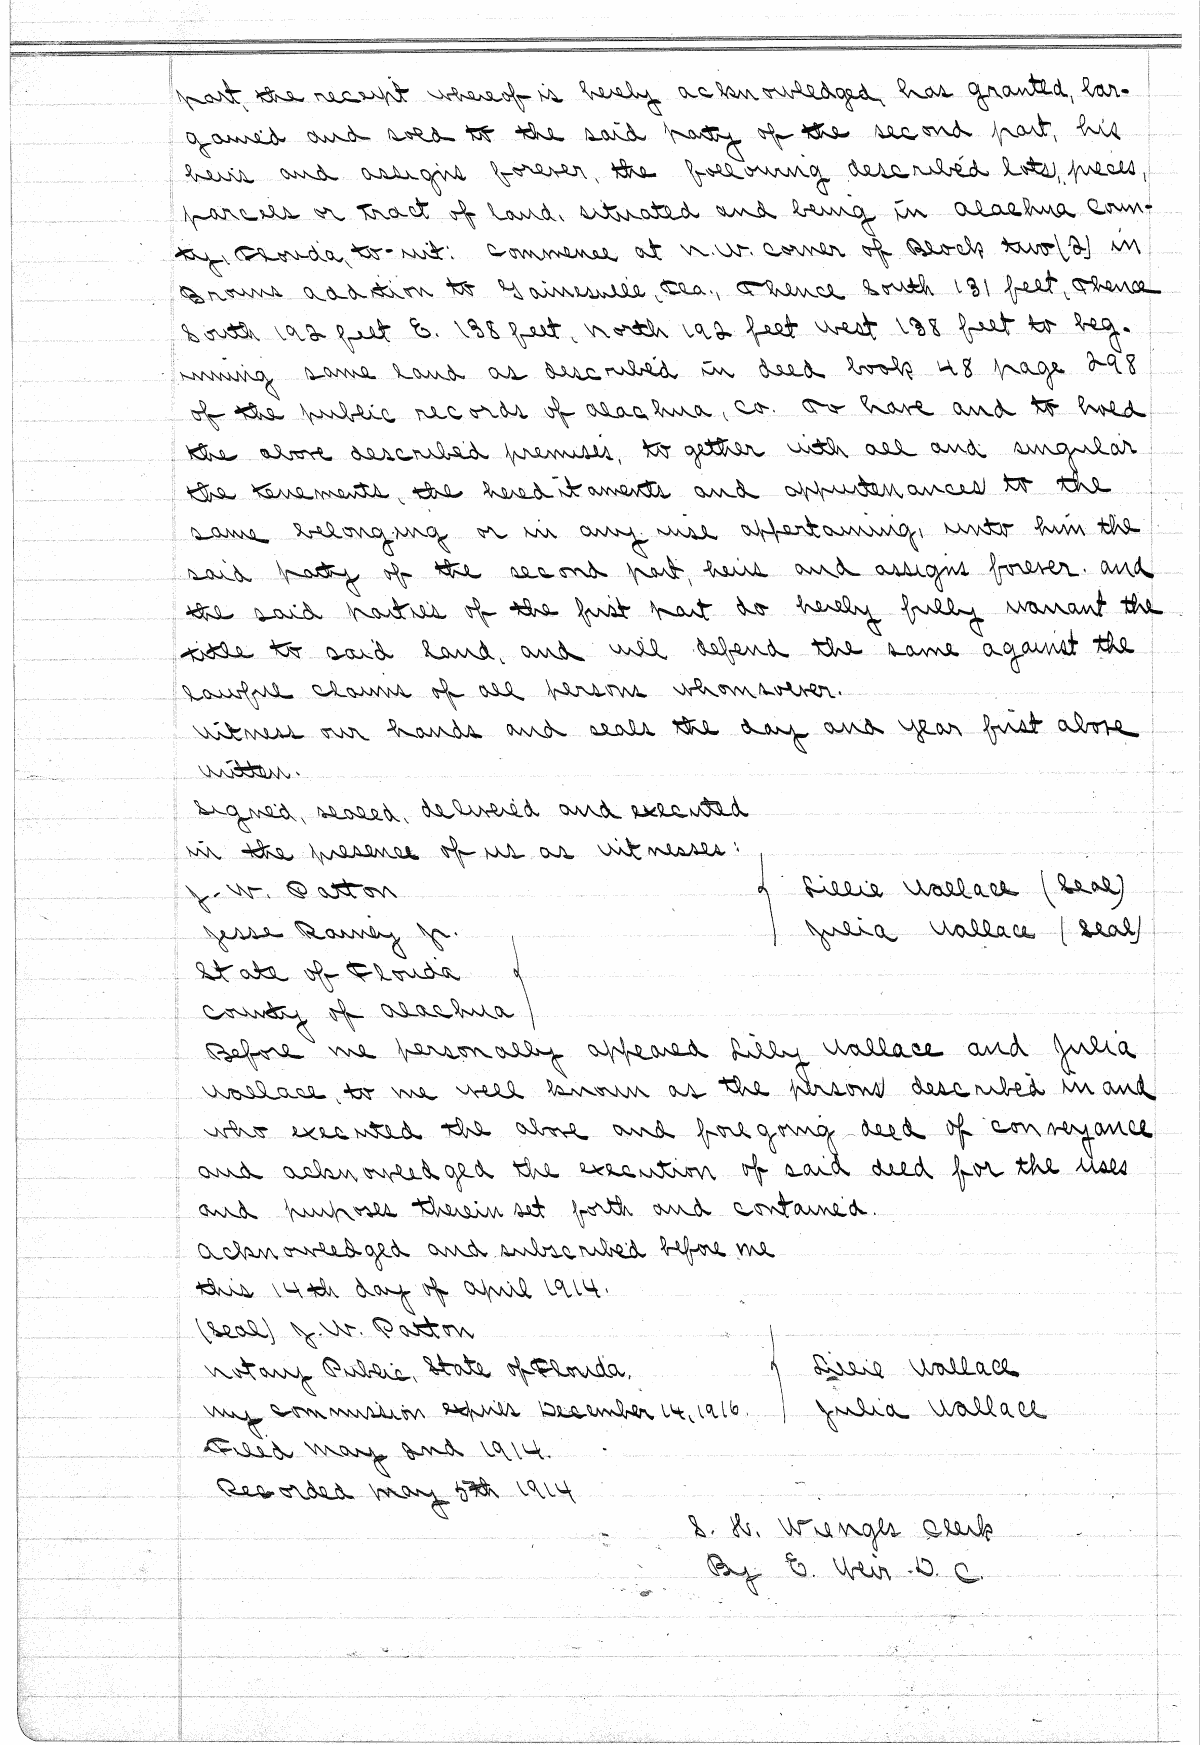 part, the receipt whereof is herely acknowledged, has granted, bar-
gained and sold to the said party of the second part, his
heirs and assigns forever, the following described lots, pieces,
parcels or tract of land, situated and being in Alachua Coun-
ty, Florida, to-wit: Commence at N.W. corner of Block two (2) in
Browns addition to Gainesville, Fla., Thence South 131 feet, Thence
South 192 feet E. 138 feet, North 192 feet west 138 feet to beg-
inning same land as described in deed book 48 page 298
of the public records of Alachua, Co. To have and to hold
the above described premises, together with all and singular
the tenements, the hereditaments and appurtenances to the
same belonging or in any wise appertaining, unto him the
said party of the second part, heirs and assigns forever. and
the said parties of the first part do hereby fully warrant the
title to said land, and will defend the same against the
lawful claims of all persons whomsoever.
Witness our hands and seals the day and year first above
written.
Signed, sealed, delivered and executed
in the presence of us as witnesses:
J. W. Patton Lillie Wallace (Seal)
Jesse Ramey Jr. Julia Wallace (Seal)
State of Florida
County of Alachua
Before me personally appeared Lilly Wallace and Julia
Wallace, to me well known as the persons described in and
who executed the above and foregoing deed of conveyance
and acknowledged the execution of said deed for the uses
and purposes therein set forth and contained.
Acknowledged and subscribed before me
this 14th day of April 1914.
(Seal) J. W. Patton
Notary Public, State of Florida. Lillie Wallace
My commission expires December 14, 1916. Julia Wallace
Filed May 2nd 1914.
Recorded May 5th 1914
S. H. Wienges Clerk
By E. Weir D. C.